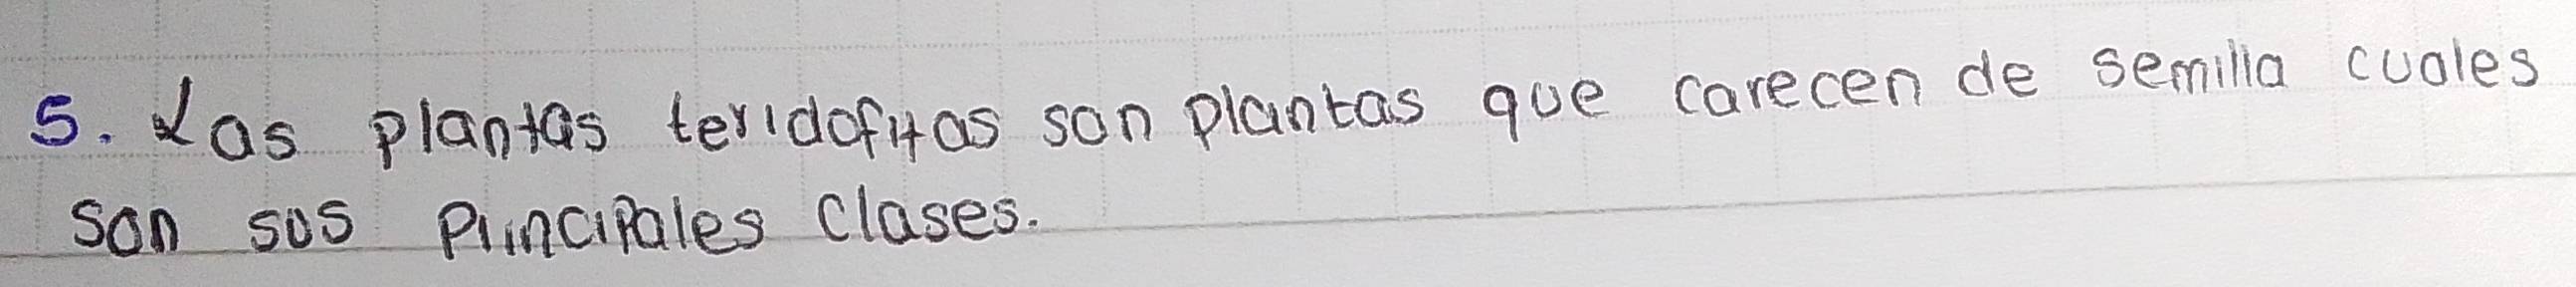 5. Las plantas teridofitas son plantas que carecen de semilla cuales
son sus principales clases.